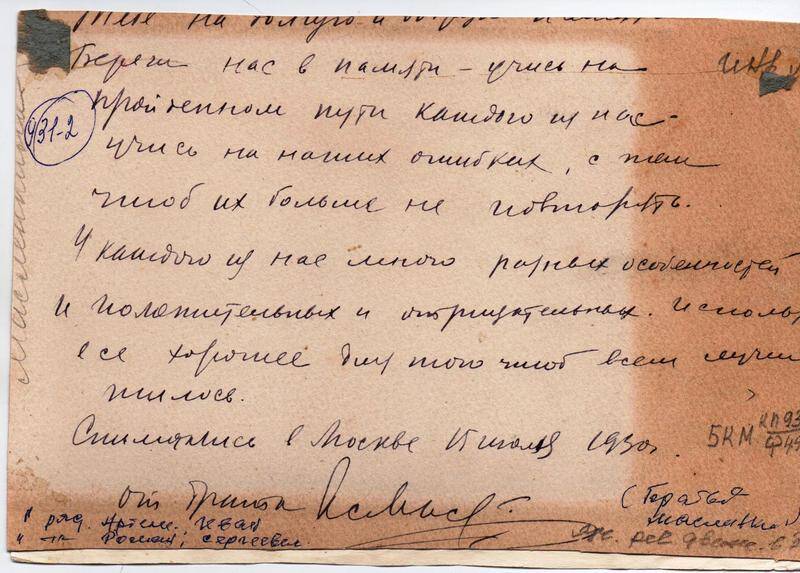 на долгую и
Береги нас в памяти – учись на
пройденном пути каждого из нас –
учись на наших ошибках, с тем
чтоб их больше не повторять.
У каждого из нас много разных особенностей
и положительных и отрицательных. Использ
все хорошее для того чтоб всем лучше
жилось.
Снимались в Москве 15 июля 1930 г.
от
(Братья
" ряд. Артем. Иван
" Роман; Сергеевы
931-2
5КМ
КП93
Ф49